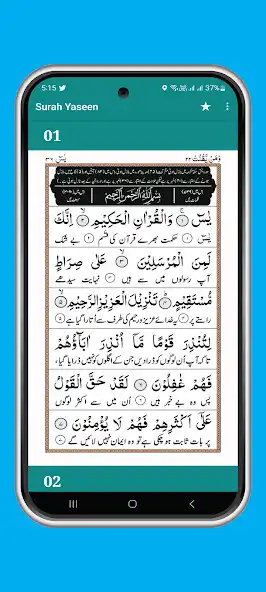 5:15
37%
Surah Yaseen
01
یٰسٓ ۳۶
وَمَنْ یَّقْنُتْ ۲۲
بِسْمِ اللّٰهِ الرَّحْمٰنِ الرَّحِیْمِ
یٰسٓ ۱ وَالْقُرْاٰنِ الْحَكِیْمِ ۲ اِنَّكَ
یٰسٓ ۱ حکمت بھرے قرآن کی قسم ۲ بے شک
لَمِنَ الْمُرْسَلِیْنَ ۳ عَلٰی صِرَاطٍ
آپ رسولوں میں سے ہیں ۳ نہایت سیدھے
مُّسْتَقِیْمٍ ۴ تَنْزِیْلَ الْعَزِیْزِ الرَّحِیْمِ ۵
راستے پر ۴ یہ خدائے عزیز و رحیم کی طرف سے اُتارا گیا ہے ۵
لِتُنْذِرَ قَوْمًا مَّاۤ اُنْذِرَ اٰبَآؤُهُمْ
تاکہ آپ اُن لوگوں کو ڈرا دیں جن کے اگلوں کو نہیں ڈرایا گیا،
فَهُمْ غٰفِلُوْنَ ۶ لَقَدْ حَقَّ الْقَوْلُ
پس وہ بے خبر ہیں ۶ اُن میں سے اکثر لوگوں
عَلٰۤی اَكْثَرِهِمْ فَهُمْ لَا یُؤْمِنُوْنَ ۷
پر بات ثابت ہو چکی ہے تو وہ ایمان نہیں لائیں گے ۷
02